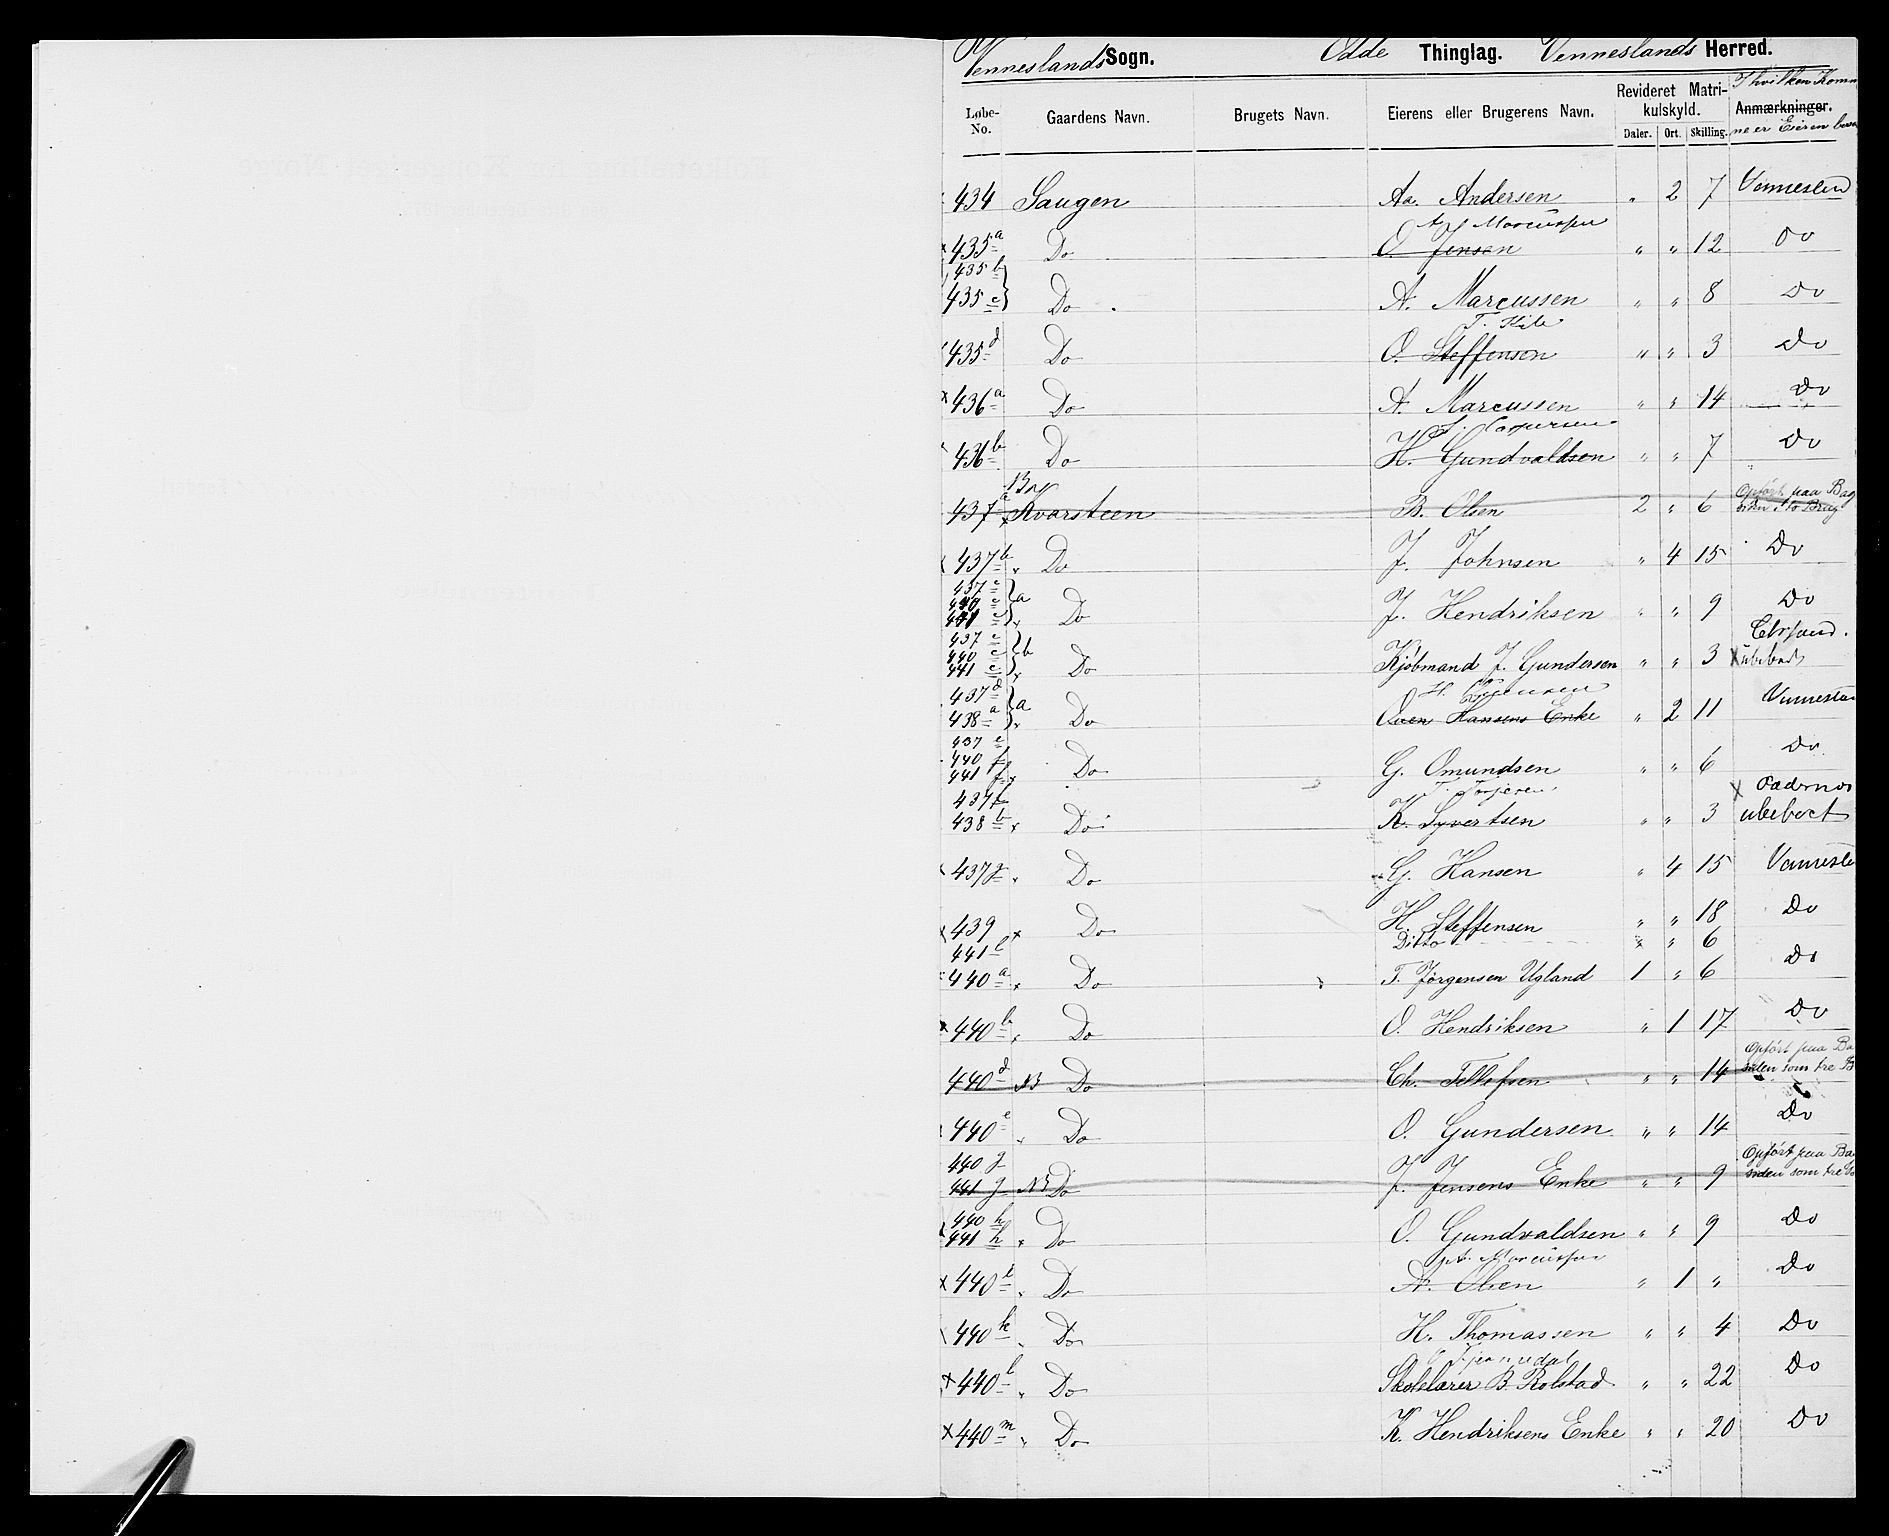 Venneslands Sogn. Odde Thinglag. Venneslands Herred.
Løbe-No. Gaardens Navn. Brugets Navn. Eierens eller Brugerens Navn. Revideret Matrikulskyld. Daler. Ort. Skilling. Anmærkninger. I hvilken Komm
ne er Eieren
434 Saugen Aa. Andersen " 2 7
A. Marcussen
435 a Do O. Jensen " " 12 Do
435 b
435 c Do A. Marcussen " " 8 Do
435 d Do O. Steffensen " " 3 Do
436 a Do A. Marcussen " " 14 Do
436 b Do H. Gundvaldsen " " 7 Do
437 a Kvarsteen B. Olsen 2 " 6 Opført paa Bag
siden i to Brug
437 b Do J. Johnsen " 4 15 Do
437 c
440 c
441 c a Do J. Hendriksen " " 9 Do
437 c
440 c
441 c b Do Kjøbmand J. Gundersen " " 3 ubeboet
437 d
438 a a Do Oven Hansens Enke " 2 11
437 e
440 f
441 f Do G. Omundsen " " 6 Do
437 f
438 b Do K. Syvertsen " " 3 ubeboet
437 g Do G. Hansen " 4 15
439 Do H. Steffensen " " 18 Do
441 l Ditto " " 6
440 a Do T. Jørgensen Ugland 1 " 6 Do
440 b Do O. Hendriksen " 1 17 Do
440 d NB Do Ch. Tellefsen " " 14 Opført paa Ba
siden som tre B
440 e Do O. Gundersen " " 14 Do
440 g
441 g NB Do J. Jensens Enke " " 9 Opført paa Ba
siden som tre
440 h
441 h Do O. Gundvaldsen " " 9 Do
A. Marcussen
440 i Do A. Olsen " 1 " Do
440 k Do H. Thomassen " " 4 Do
440 l Do Skolelærer B. Rolstad " " 22 Do
440 m Do K. Hendriksens Enke " " 20 Do